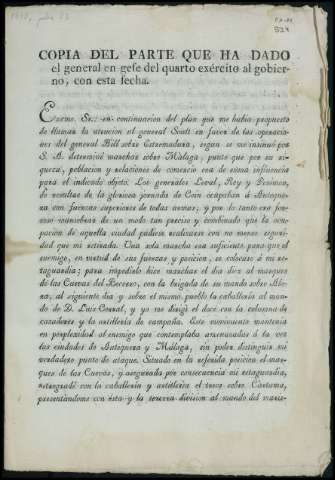 COPIA DEL PARTE QUE HA DADO
el general en gefe del quarto exército al gobier-
no, con esta fecha.
Excmo. Sr.: en continuacion del plan que me habia propuesto
de llamar la atencion al general Soult en favor de las operacio-
nes del general Hill sobre Estremadura, segun se me insinuó por
S. A. determiné marchar sobre Málaga, punto que por su ri-
queza, poblacion y relaciones de comercio era de suma influencia
para el indicado objeto. Los generales Leval, Rey y
de resultas de la gloriosa jornada de Coin ocupaban á Antequera
con fuerzas superiores de todas armas, y por de tanto era for-
zoso maniobrar de un modo tan preciso y combinado que la ocu-
pacion de aquella ciudad pudiera realizarse con no menos seguri-
dad que mi retirada. Una sola marcha era suficiente para que el
enemigo, en virtud de sus fuerzas y posicion, se colocase á mi re-
taguardia; para impedirlo hice marchar el dia diez al marques
de las Cuevas del Becerro, con la brigada de su mando sobre Alo-
ra, al siguiente dia y sobre el mismo pueblo la caballería al man-
do de D. Luis Corral, y yo me dirigí el doce con la columna de
cazadores y la artillería de campaña. Este movimiento mantenia
en perplexidad al enemigo que contemplaba amenazadas á la vez
las ciudades de Antequera y Málaga, sin poder distinguir mi
verdadero punto de ataque. Situado en la referida posicion el mar-
ques de las Cuevas, y asegurada por consecuencia mi retaguardia,
retrogradé con la caballería y artillería el trece sobre Cártama,
presentándome con ésta y la tercera division al mando del maris-